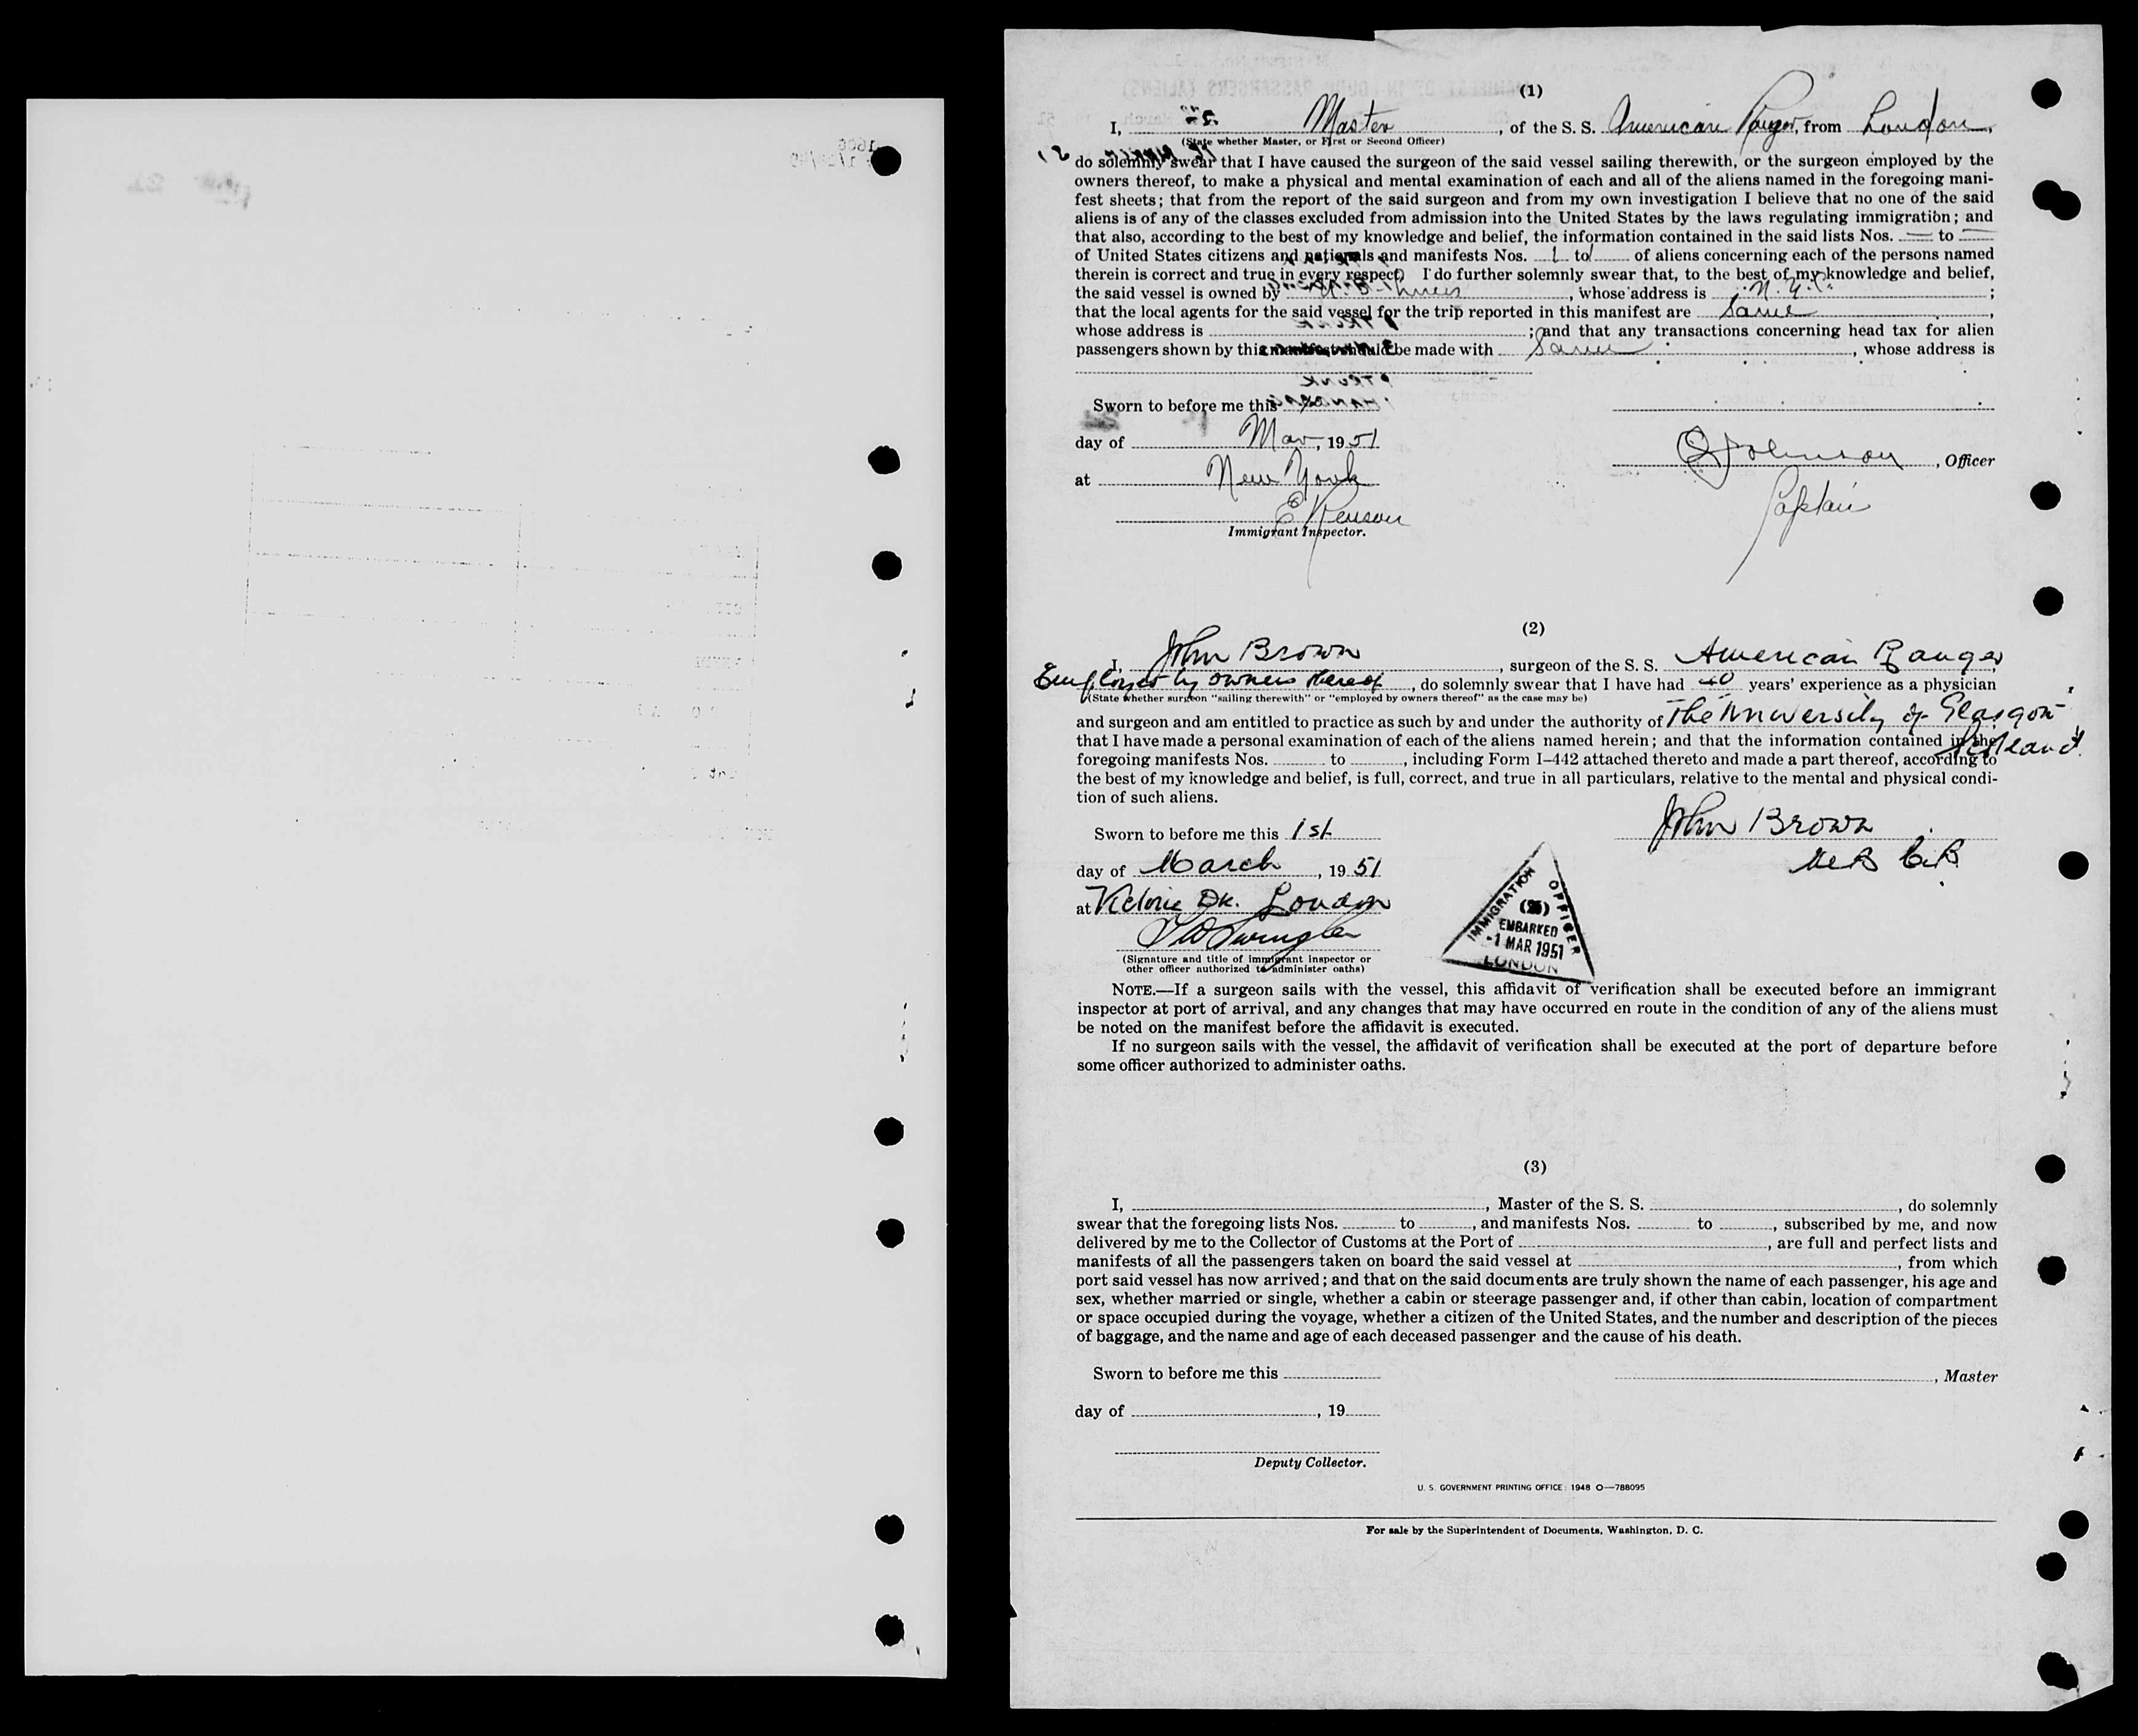 (1)
I, Master, of the S. S. American Ranger, from London,
(State whether Master, or First or Second Officer)
do solemnly swear that I have caused the surgeon of the said vessel sailing therewith, or the surgeon employed by the
owners thereof, to make a physical and mental examination of each and all of the aliens named in the foregoing mani-
fest sheets; that from the report of the said surgeon and from my own investigation I believe that no one of the said
aliens is of any of the classes excluded from admission into the United States by the laws regulating immigration; and
that also, according to the best of my knowledge and belief, the information contained in the said lists Nos. — to —
of United States citizens and nationals and manifests Nos. 1 to 1 of aliens concerning each of the persons named
therein is correct and true in every respect. I do further solemnly swear that, to the best of my knowledge and belief,
the said vessel is owned by U. S. Lines, whose address is N. Y. C.;
that the local agents for the said vessel for the trip reported in this manifest are Same,
whose address is ; and that any transactions concerning head tax for alien
passengers shown by this manifest should be made with Same, whose address is
Sworn to before me this
day of Mar, 1951
at New York
Johnson, Officer
Captain
Immigrant Inspector.
(2)
I, John Brown, surgeon of the S. S. American Ranger
Employed by owners thereof, do solemnly swear that I have had 40 years' experience as a physician
(State whether surgeon "sailing therewith" or "employed by owners thereof" as the case may be)
and surgeon and am entitled to practice as such by and under the authority of The University of Glasgow
Scotland.
that I have made a personal examination of each of the aliens named herein; and that the information contained in the
foregoing manifests Nos. to , including Form I-442 attached thereto and made a part thereof, according to
the best of my knowledge and belief, is full, correct, and true in all particulars, relative to the mental and physical condi-
tion of such aliens.
Sworn to before me this 1st
John Brown
day of March, 1951
at Victoria Dk. London
IMMIGRATION OFFICER
(25)
EMBARKED
-1 MAR 1951
LONDON
(Signature and title of immigrant inspector or
other officer authorized to administer oaths)
NOTE.—If a surgeon sails with the vessel, this affidavit of verification shall be executed before an immigrant
inspector at port of arrival, and any changes that may have occurred en route in the condition of any of the aliens must
be noted on the manifest before the affidavit is executed.
If no surgeon sails with the vessel, the affidavit of verification shall be executed at the port of departure before
some officer authorized to administer oaths.
(3)
I, , Master of the S. S. , do solemnly
swear that the foregoing lists Nos. to , and manifests Nos. to , subscribed by me, and now
delivered by me to the Collector of Customs at the Port of , are full and perfect lists and
manifests of all the passengers taken on board the said vessel at , from which
port said vessel has now arrived; and that on the said documents are truly shown the name of each passenger, his age and
sex, whether married or single, whether a cabin or steerage passenger and, if other than cabin, location of compartment
or space occupied during the voyage, whether a citizen of the United States, and the number and description of the pieces
of baggage, and the name and age of each deceased passenger and the cause of his death.
Sworn to before me this
, Master
day of , 19
Deputy Collector.
U. S. GOVERNMENT PRINTING OFFICE: 1948 O—788095
For sale by the Superintendent of Documents, Washington, D. C.